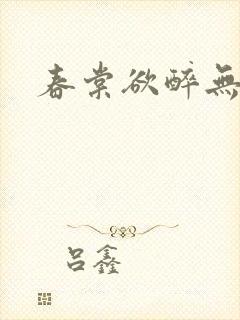 春棠欲醉無
吕鑫